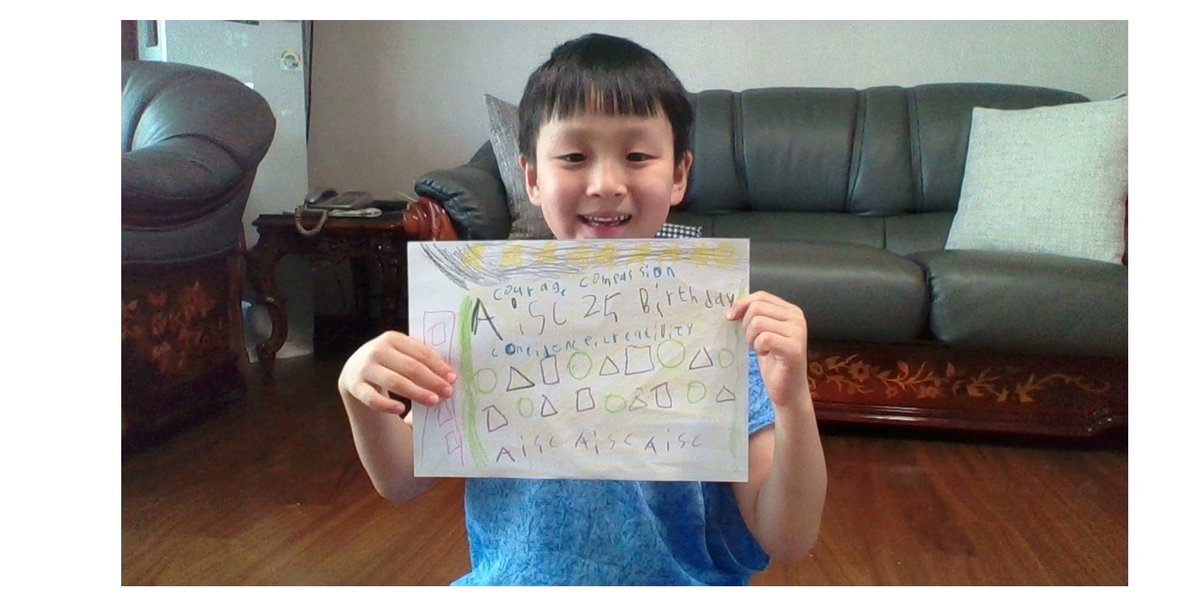 courage compassion
Aisc 25 Birthday
confidence creatility
Aisc Aisc Aisc